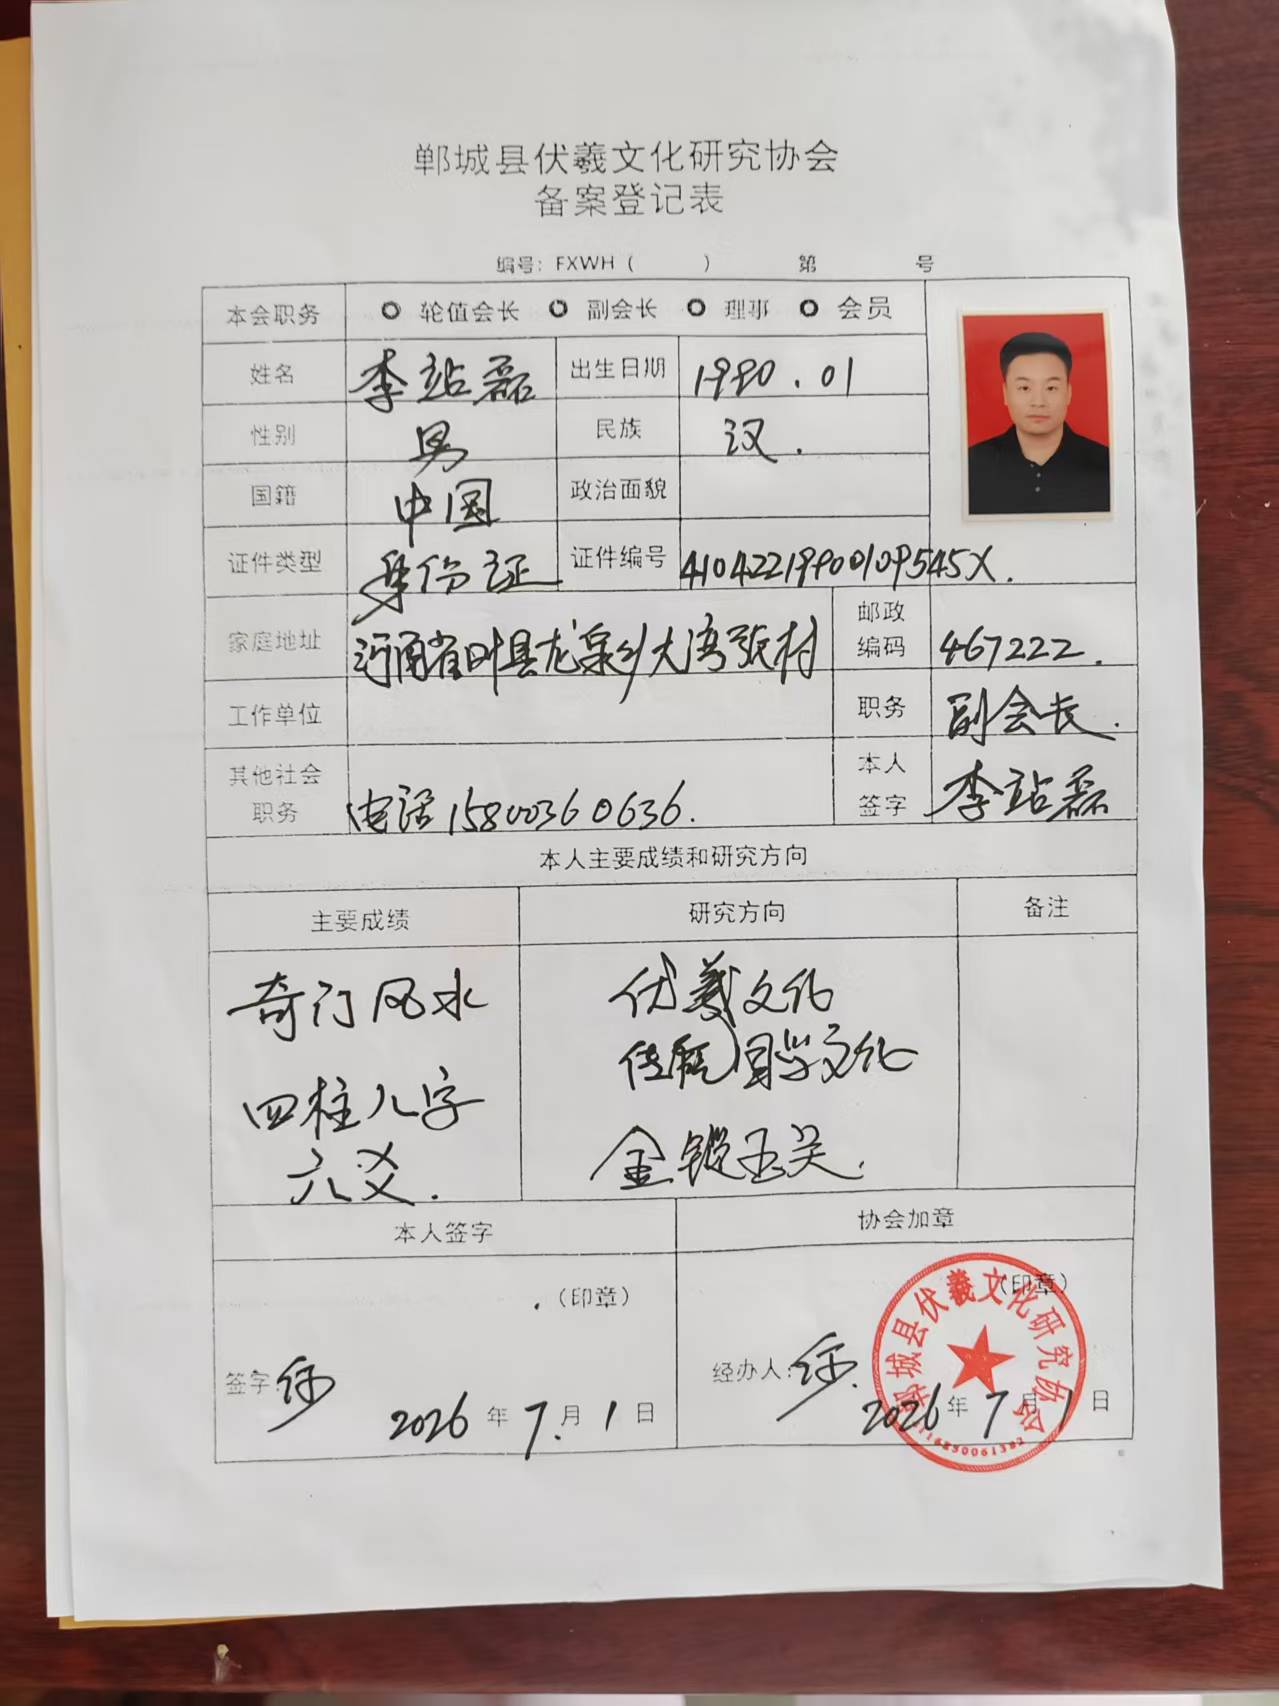 郸城县伏羲文化研究协会
备案登记表
编号：FXWH（ ） 第 号
本会职务 轮值会长 副会长 理事 会员
姓名 李站磊 出生日期 1990.01
性别 男 民族 汉.
国籍 中国 政治面貌
证件类型 身份证 证件编号 41042219900109545X.
家庭地址 河南省叶县龙泉乡大湾张村 邮政编码 467222.
工作单位 职务 副会长.
其他社会职务 电话15800360636. 本人签字 李站磊
本人主要成绩和研究方向
主要成绩 研究方向 备注
奇门风水 伏羲文化
四柱八字 传统国学文化
六爻. 金锁玉关.
本人签字 协会加章
（印章） （印章）
签字: 经办人:
2026年7.月1日 2026年7月1日
郸城县伏羲文化研究协会